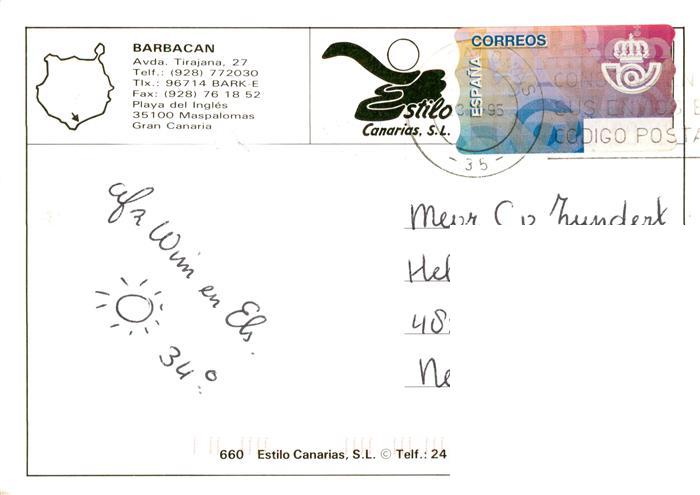 BARBACAN
Avda. Tirajana, 27
Telf.: (928) 772030
Tlx.: 96714 BARK-E
Fax: (928) 76 18 52
Playa del Inglés
35100 Maspalomas
Gran Canaria
Estilo
Canarias, S.L.
CORREOS
ESPAÑA
95
- 35 -
CODIGO POSTA
afz Wim en Els.
34°
660 Estilo Canarias, S.L. © Telf.: 24